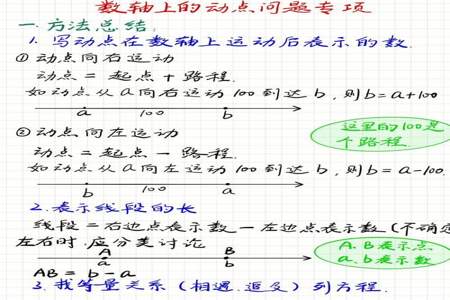 数轴上的动点问题专项
一.方法总结:
1. 写动点在数轴上运动后表示的数.
① 动点向右运动
动点 = 起点 + 路程.
如动点从a向右运动100到达b,则b=a+100
a 100 b
② 动点向左运动
这里的100是
个路程.
动点 = 起点 - 路程.
如动点从a向左运动100到达b,则b=a-100.
b 100 a
2.表示线段的长
线段 = 右边点表示数 - 左边点表示数 (不确定
左右时,应分类讨论
A B
a b
A.B表示点
a.b表示数
AB = b - a
3.找等量关系(相遇.追及)列方程.